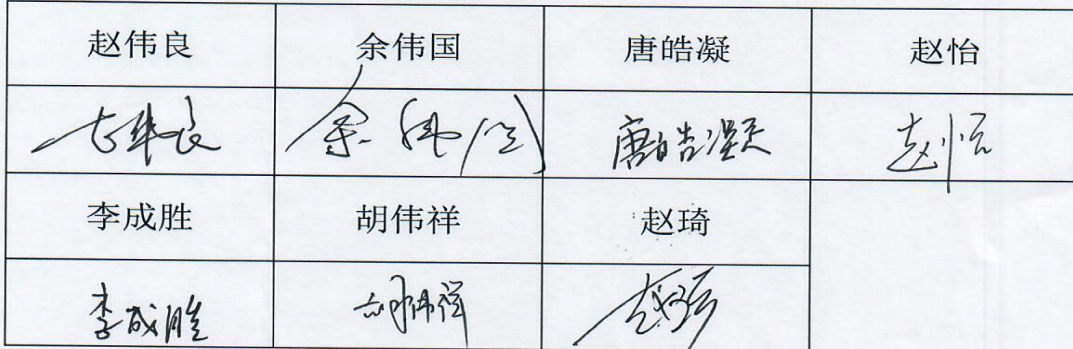 赵伟良 余伟国 唐皓凝 赵怡
赵伟良 余伟国 唐皓凝 赵怡
李成胜 胡伟祥 赵琦
李成胜 胡伟祥 赵琦